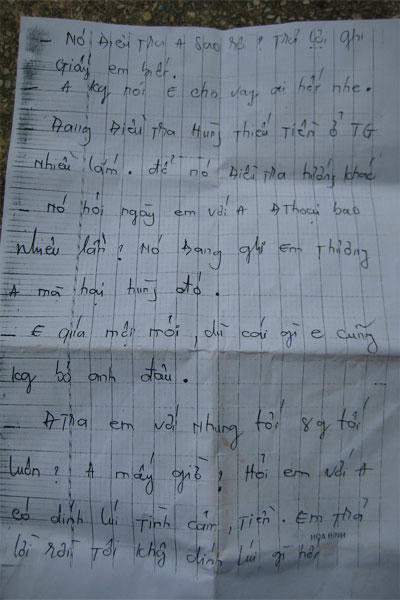 - Nó Điều Tra A sao rồi? Trả lời ghi
giấy em biết.
- A kg nói E cho vay ai hết nhe.
- Đang Điều Tra Hùng Thiếu Tiền ở TG
Nhiều lắm. để nó Điều Tra hướng khác
- Nó hỏi ngày em với A Đthoại bao
Nhiêu lần? Nó Đang ghi Em Thương
A mà hại hùng đó.
- E qúa mệt mỏi, dù cái gì e cũng
kg bỏ anh đâu.
- ĐTra em với Nhung tối 8g tối
luôn? A mấy giờ? Hỏi em với A
có dính líu Tình cảm, Tiền. Em Trả
lời rồi Tôi khg dính líu gì hết
HOA BINH